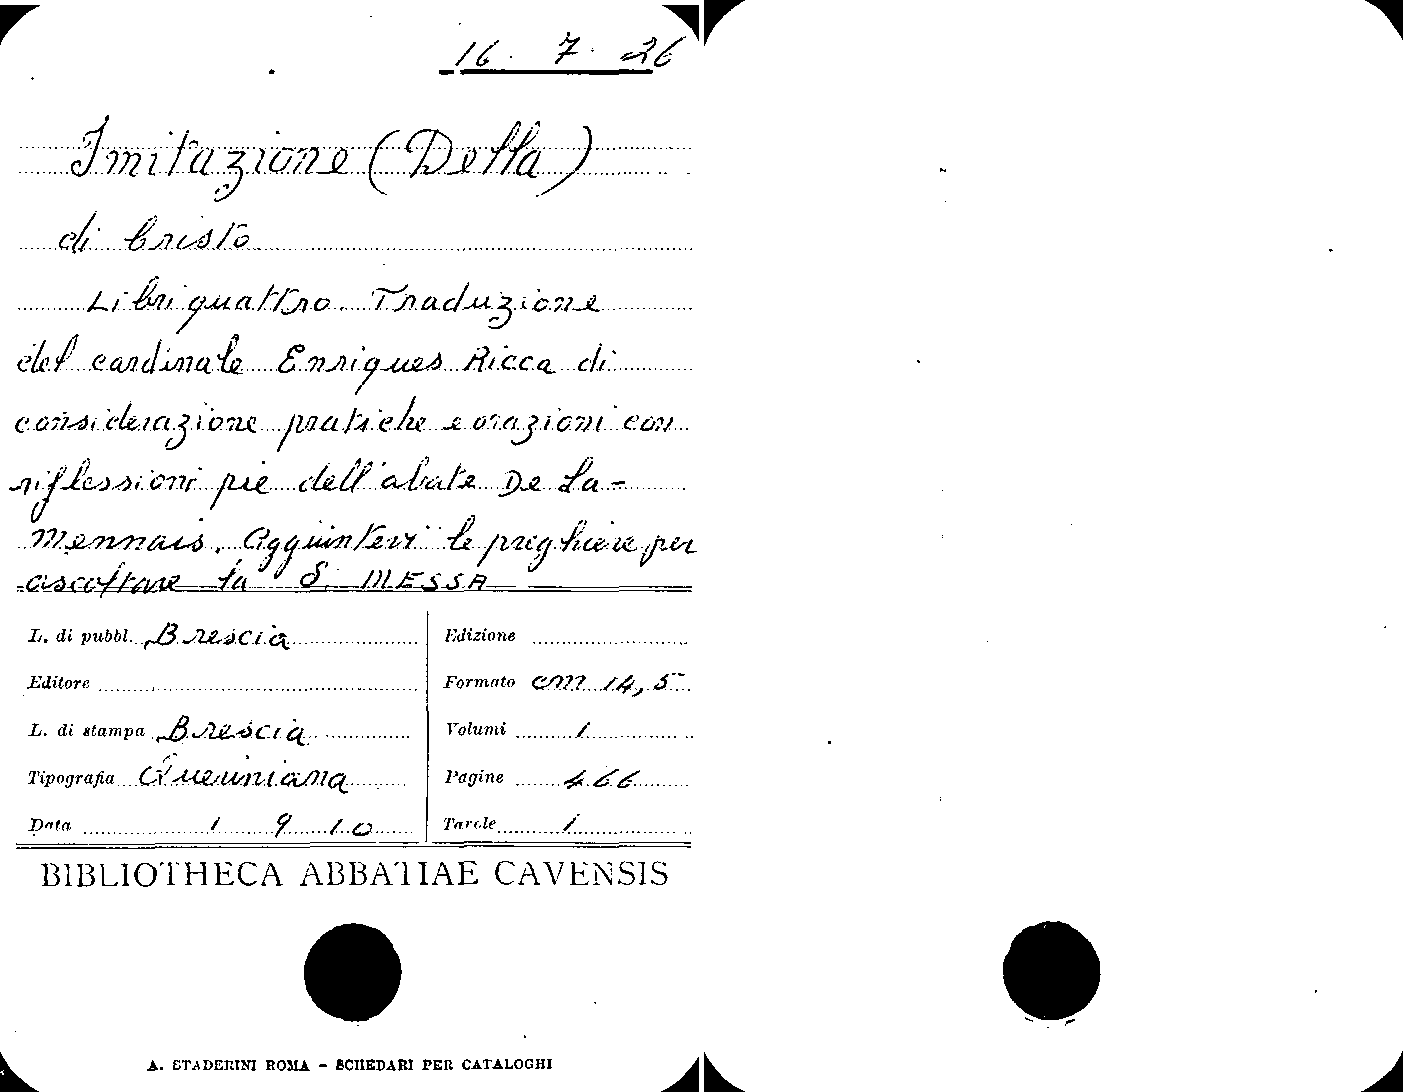 16. 7. 26
Imitazione (Della)
di Cristo
Libri quattro. Traduzione
del cardinale Enriques Ricca di
considerazione pratiche e orazioni con
riflessioni pie dell'abate De La-
Mennais. Aggiuntevi le preghiere per
ascoltare la S. MESSA
L. di pubbl. Brescia
Editore
L. di stampa Brescia
Tipografia Queriniana
Data 1910
Edizione
Formato cm 14,5
Volumi 1
Pagine 466
Tavole 1
BIBLIOTHECA ABBATIAE CAVENSIS
A. STADERINI ROMA - SCHEDARI PER CATALOGHI